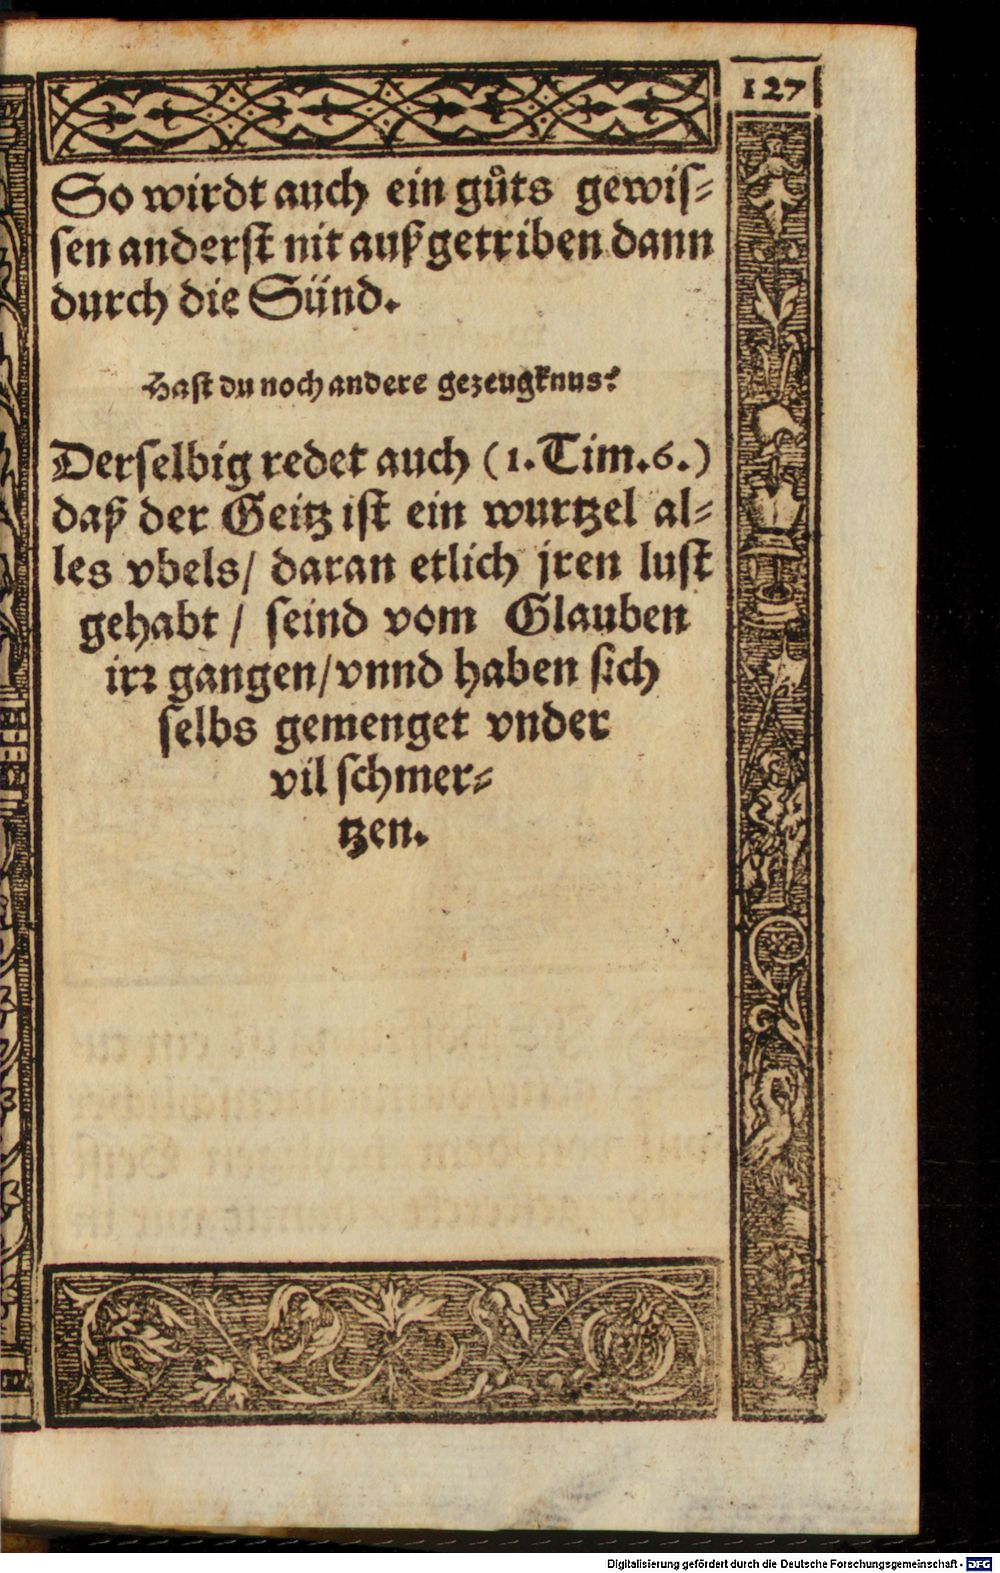 127
So wirdt auch ein guͦts gewiſ⸗
ſen anderſt nit auß getriben dann
durch die Sünd.
Haſt du noch andere gezeugknus?
Derſelbig redet auch (1. Tim. 6.)
daß der Geitz iſt ein wurtzel al⸗
les vbels/ daran etlich jren luſt
gehabt / ſeind vom Glauben
irꝛ gangen/ vnnd haben ſich
ſelbs gemenget vnder
vil ſchmer⸗
tzen.
Digitalisierung gefördert durch die Deutsche Forschungsgemeinschaft - DFG